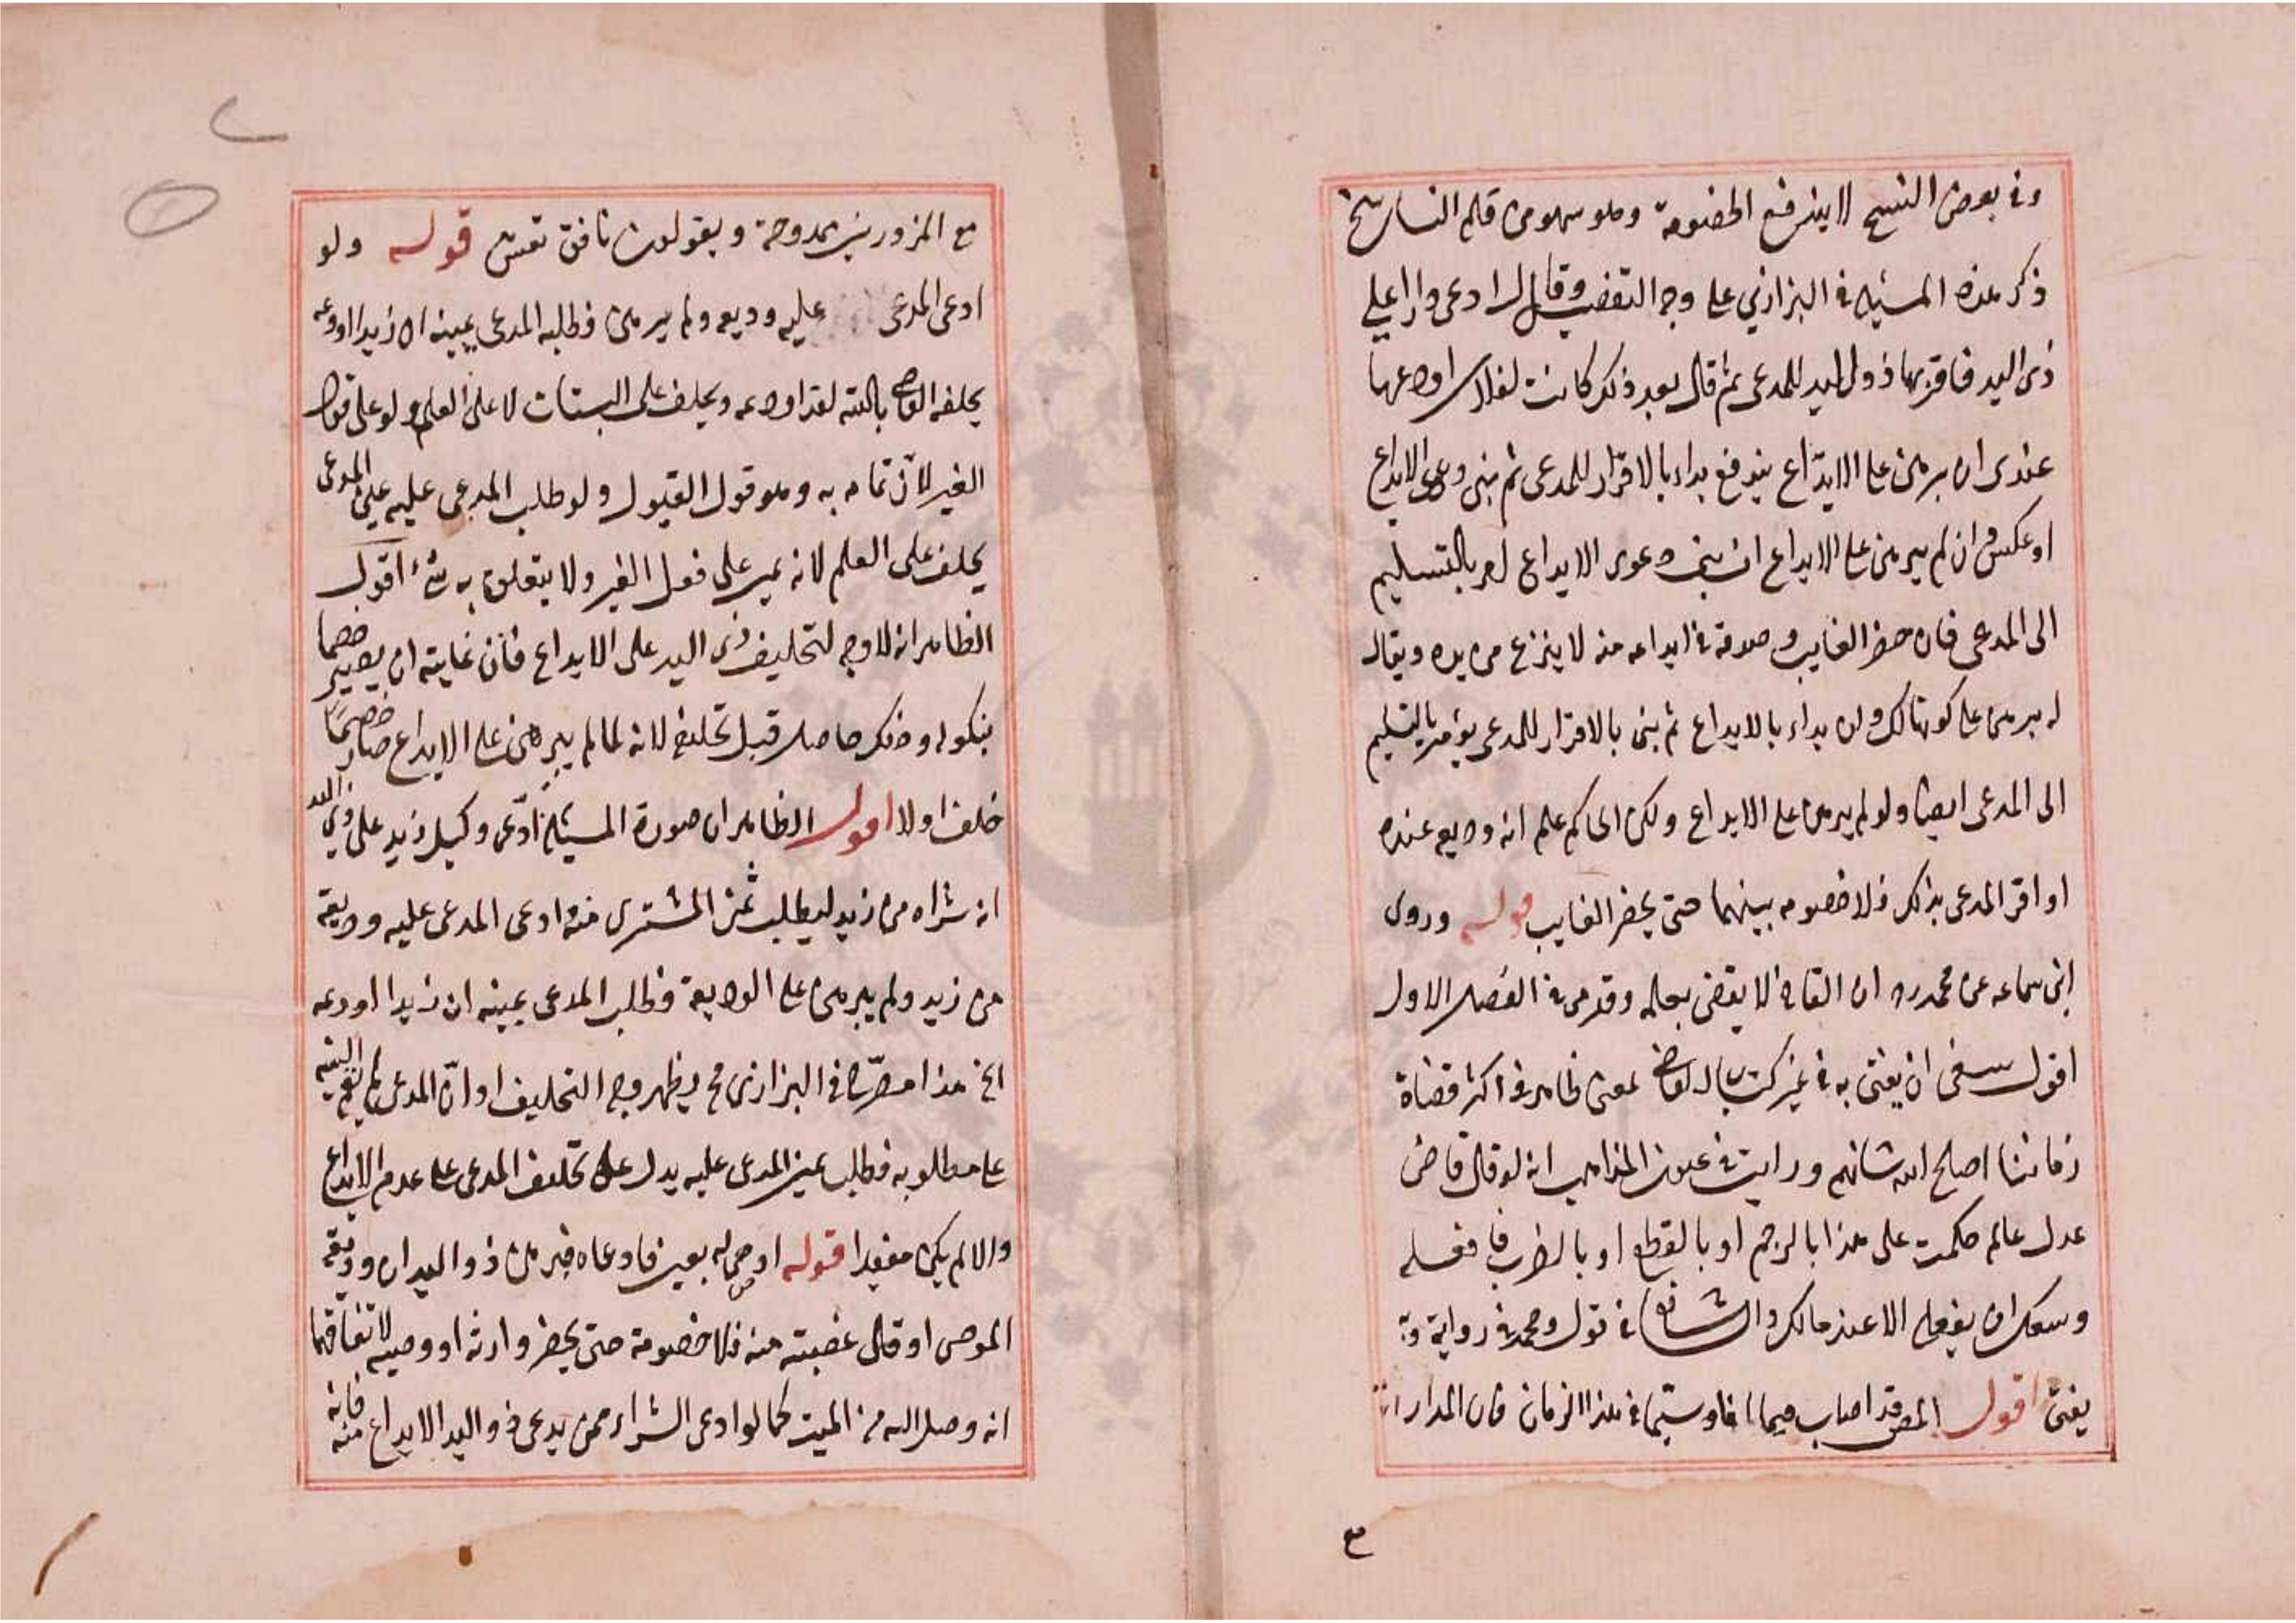 وفي بعض النسخ لا يندفع الخصومة وهو سهو من قلم الناسخ
ذكر هذه المسئلة في البزازي على وجه التفصيل وقال ادعى دارا على
ذى اليد فاقر بها ذو اليد للمدعى ثم قال بعد ذلك كانت لفلان اودعها
عندى ان برهن على الايداع يندفع بداء بالاقرار للمدعى ثم بنى دعوى الايداع
او عكس وان لم يبرهن على الايداع ان بنى دعوى الايداع امر بالتسليم
الى المدعى فان حضر الغايب وصدقه في ايداعه منه لا ينزع من يده ويقال
له برهن على كونها لك وان بداء بالايداع ثم بنى بالاقرار للمدعى يؤمر بالتسليم
الى المدعى ايضا ولو لم يبرهن على الايداع ولكن الحاكم علم انه وديعه عنده
او اقر المدعى بذلك فلا خصومه بينهما حتى يحضر الغايب قوله وروى
ابن سماعه عن محمد ره ان القاضي لا يقضى بعلمه وقد مر في الفصل الاول
اقول ينبغى ان يفتى به في غير كتاب القاضي لمعنى ظاهر في اكثر قضاة
زماننا اصلح الله شانهم ورايت في عيون المذاهب انه لو قال قاض
عدل عالم حكمت على هذا بالرجم او بالقطع او بالضرب فافعله
وسعك ان يفعله الا عند مالك والشافعي في قول ومحمد في رواية وبه
يفتى اقول المص قد اصاب فيما افاد سيما في هذا الزمان فان المدار
ع
مع المزورين ممدوحة ويقولون نافق تعش قوله ولو
ادعى المدعى عليه وديعه ولم يبرهن فطلبه المدعى يمينه ان زيدا اودعه
يحلفه القاضي بالله لقد اودعه ويحلف على البتات لا على العلم ولو على فعل
الغير لان تمامه به وهو قول القبول ولو طلب المدعى عليه يمين المدعى
يحلف على العلم لانه يمين على فعل الغير ولا يتعلق به شئ اقول
الظاهر انه لا وجه لتحليف ذى اليد على الايداع فان غايته ان يصير خصما
بنكوله وذلك حاصل قبل تحليفه لانه لما لم يبرهن على الايداع صار خصما
حلف او لا اقول الظاهر ان صورة المسئلة ادعى وكيل زيد على ذي اليد
انه شراه من زيد ليطلب ثمن المشترى منه وادعى المدعى عليه وديعة
من زيد ولم يبرهن على الوديعة وطلب المدعى يمينه ان زيدا اودعه
الخ هذا مصرح في البزازى فح يظهر وجه التحليف او ان المدعى لم يقم البينه
على مطلوبه فطلب يمين المدعى عليه يدل على تحليف المدعى على عدم الايداع
والا لم يكن مفيدا قوله اوصى له بعين فادعاه فبرهن ذو اليد ان وديعة
الموصى او قال غصبته منه فلا خصومة حتى يحضر وارثه او وصيه لاتفاقهما
انه وصل اليه من الميت كما لو ادعى الشراء ممن يدعى ذو اليد الايداع منه فانه